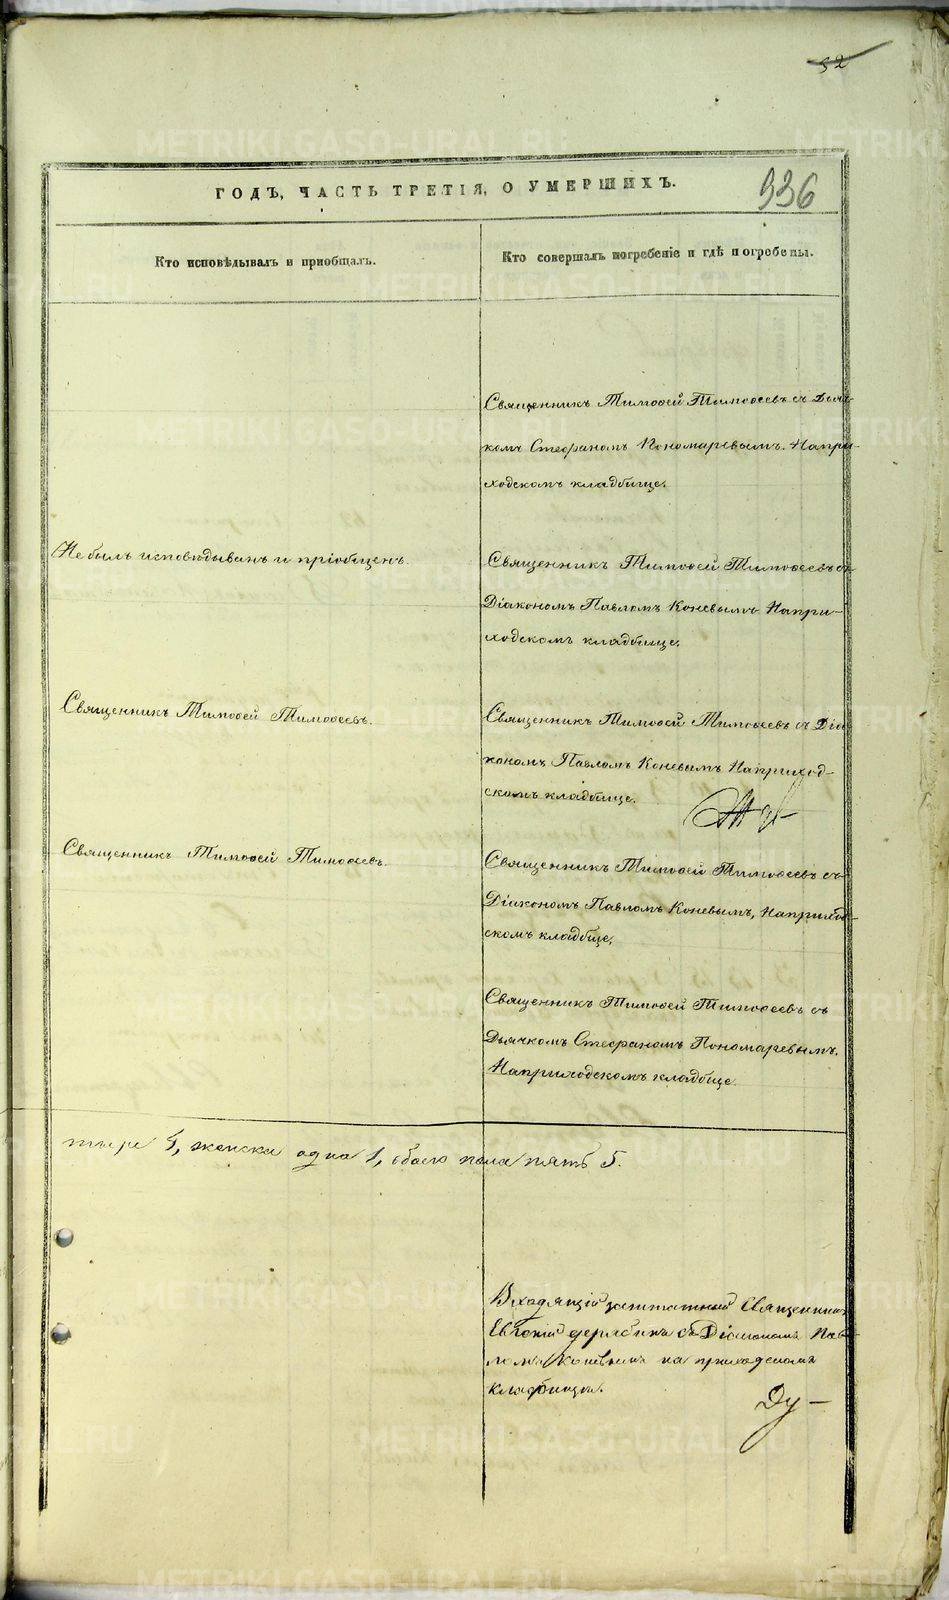 52
936
ГОДЪ, ЧАСТЬ ТРЕТІЯ, О УМЕРШИХЪ.
Кто исповѣдывалъ и пріобщалъ.
Кто совершалъ погребеніе и гдѣ погребены.
Священникъ Тимоѳей Тимоѳеевъ съ Дьяч-
комъ Стефаномъ Пономаревымъ. На при-
ходскомъ кладбище.
Не былъ исповѣдыванъ и пріобщенъ.
Священникъ Тимоѳей Тимоѳеевъ съ
Діакономъ Павломъ Коневымъ На при-
ходскомъ кладбище.
Священникъ Тимоѳей Тимоѳеевъ.
Священникъ Тимоѳей Тимоѳеевъ съ Діа
кономъ Павломъ Коневымъ На приход-
скомъ кладбище.
Священникъ Тимоѳей Тимоѳеевъ.
Священникъ Тимоѳей Тимоѳеевъ съ
Діакономъ Павломъ Коневымъ, На приход-
скомъ кладбище.
Священникъ Тимоѳей Тимоѳеевъ съ
Дьячкомъ Стефаномъ Пономаревымъ.
На приходскомъ кладбище.
тыре 4, женска одна 1, обоего пола пять 5.
заштатный Священникъ
Евгеній съ Діакономъ Пав-
ломъ Коневымъ на приходскомъ
кладбище.
METRIKI.GASO-URAL.RU